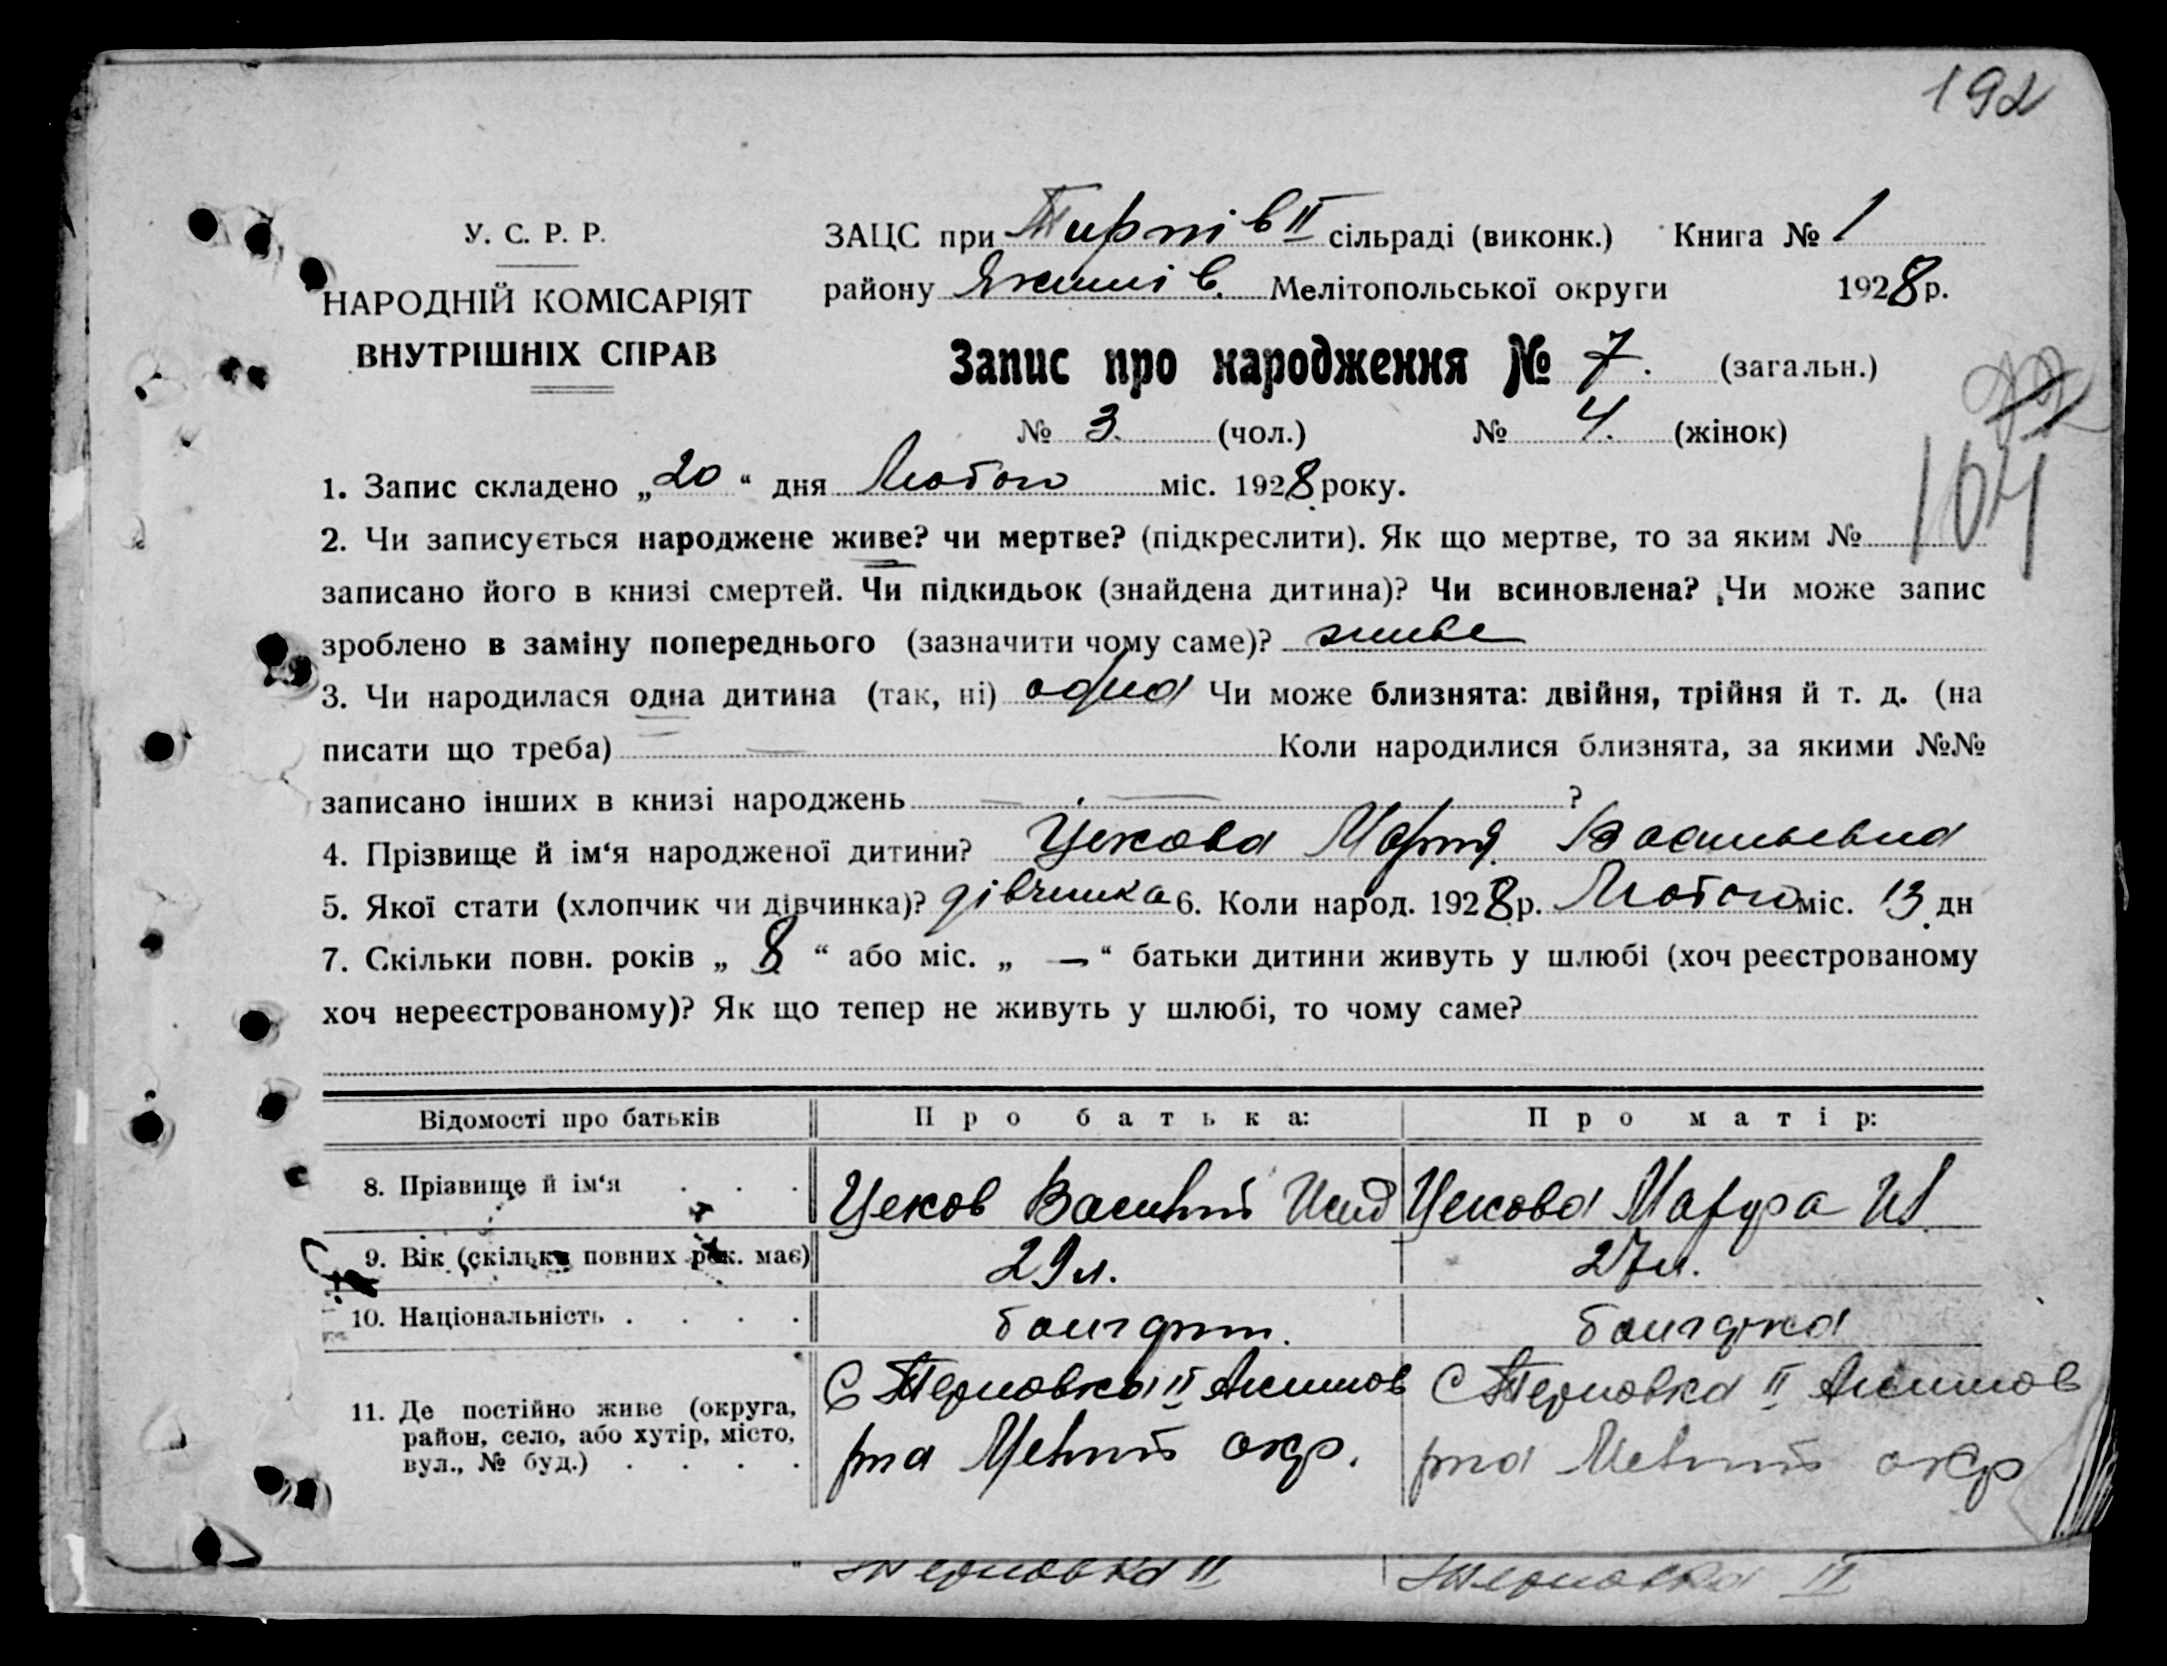 192
У. С. Р. Р.
НАРОДНІЙ КОМІСАРІЯТ
ВНУТРІШНІХ СПРАВ
ЗАЦС при Тирпів II сільраді (виконк.) Книга № 1
району Якимів. Мелітопольської округи 1928 р.
Запис про народження № 7. (загальн.)
№ 3. (чол.) № 4. (жінок)
104
1. Запис складено „20“ дня Лютого міс. 1928 року.
2. Чи записується народжене живе? чи мертве? (підкреслити). Як що мертве, то за яким №
записано його в книзі смертей. Чи підкидьок (знайдена дитина)? Чи всиновлена? Чи може запис
зроблено в заміну попереднього (зазначити чому саме)? живе
3. Чи народилася одна дитина (так, ні) одна Чи може близнята: двійня, трійня й т. д. (на
писати що треба) — Коли народилися близнята, за якими №№
записано інших в книзі народжень — — ?
4. Прізвище й ім‘я народженої дитини? Цекова Марія Васильевна
5. Якої стати (хлопчик чи дівчинка)? дівчинка 6. Коли народ. 1928 р. Лютого міс. 13 дн
7. Скільки повн. років „ 8 “ або міс. „ — “ батьки дитини живуть у шлюбі (хоч реєстрованому
хоч нереєстрованому)? Як що тепер не живуть у шлюбі, то чому саме?
Відомості про батьків Про батька: Про матір:
8. Прізвище й ім‘я . . . Цеков Василий Исид Цекова Марфа Ив
9. Вік (скільки повних рок. має) 29 л. 27 л.
10. Національність . . . . болгарин. болгарка
11. Де постійно живе (округа,
район, село, або хутір, місто,
вул., № буд.) . . . .
С Терновка II Акимов
рна Мелит окр.
С Терновка II Акимов
рна Мелит окр
Терновка II Терновка II